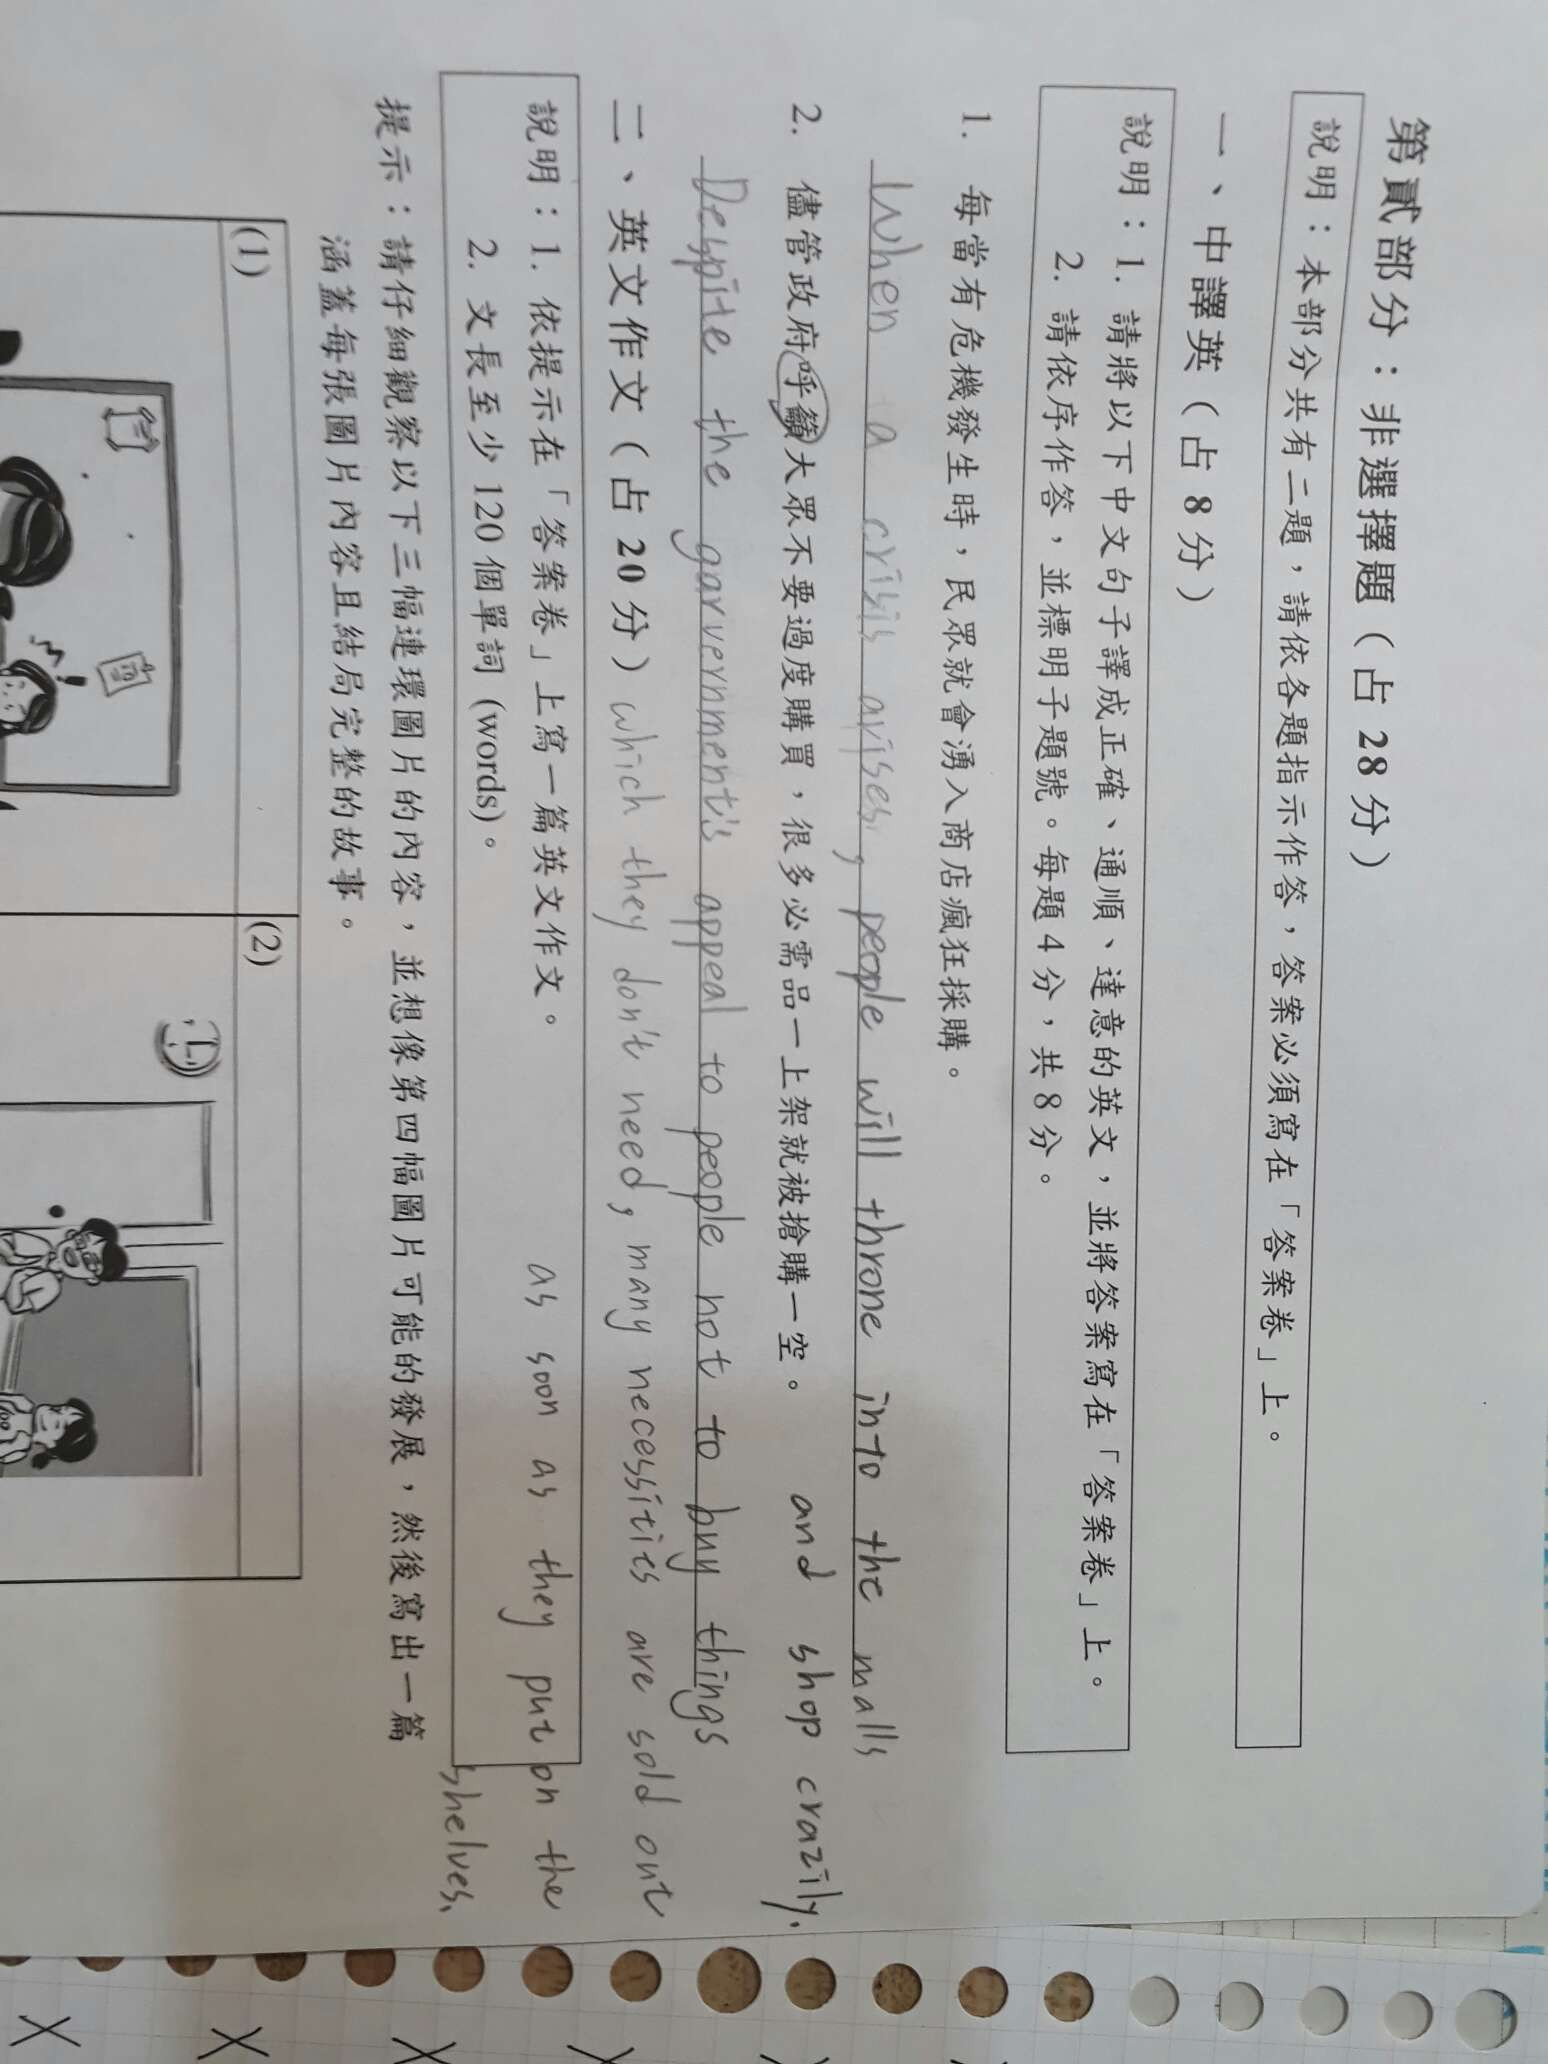 第貳部分：非選擇題（占 28 分）
說明：本部分共有二題，請依各題指示作答，答案必須寫在「答案卷」上。
一、中譯英（占 8 分）
說明：1. 請將以下中文句子譯成正確、通順、達意的英文，並將答案寫在「答案卷」上。
2. 請依序作答，並標明子題號。每題 4 分，共 8 分。
1. 每當有危機發生時，民眾就會湧入商店瘋狂採購。
When a crisis arises, people will throne into the malls
and shop crazily.
2. 儘管政府呼籲大眾不要過度購買，很多必需品一上架就被搶購一空。
Despite the garvernment's appeal to people not to buy things
which they don't need, many necessities are sold out
as soon as they put on the
shelves.
二、英文作文（占 20 分）
說明：1. 依提示在「答案卷」上寫一篇英文作文。
2. 文長至少 120 個單詞 (words)。
提示：請仔細觀察以下三幅連環圖片的內容，並想像第四幅圖片可能的發展，然後寫出一篇
涵蓋每張圖片內容且結局完整的故事。
(1)
(2)